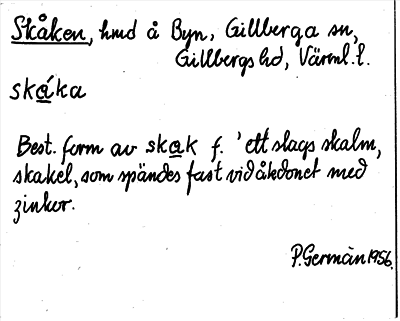 Skåken, hmd å Byn, Gillberga sn,
Gillbergs hd, Värml. l.
skáka
Best. form av skak f. 'ett slags skalm,
skakel, som spändes fast vid åkdonet med
zinkor.
P. Germàn 1956.